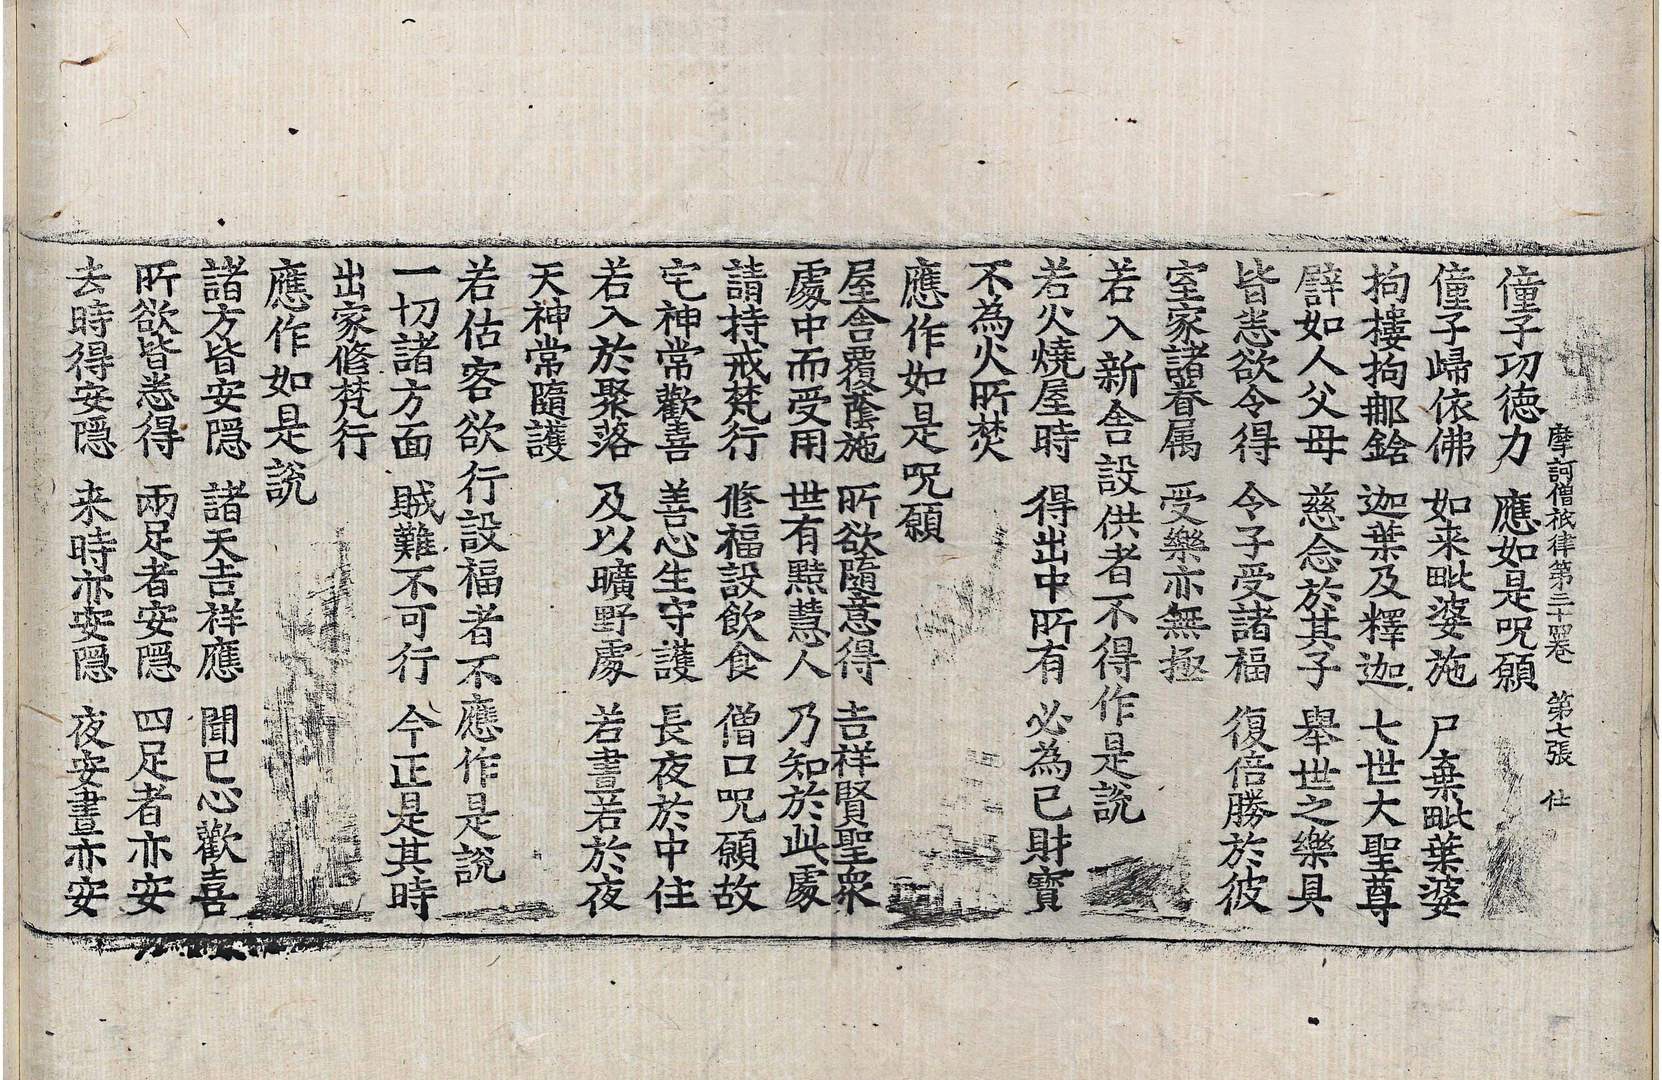 摩訶僧祇律第三十四卷　第七張　仕
僮子功德力　應如是呪願
僮子歸依佛　如来毗婆施　尸棄毗葉婆
拘樓拘郍鋡　迦葉及釋迦　七世大聖尊
譬如人父母　慈念於其子　舉世之樂具
皆悉欲令得　令子受諸福　復倍勝於彼
室家諸眷属　受樂亦無極
若入新舍設供者不得作是說
若火燒屋時　得出中所有　必為已財寶
不為火所焚
應作如是呪願
屋舍覆蔭施　所欲隨意得　吉祥賢聖衆
處中而受用　世有黠慧人　乃知於此處
請持戒梵行　修福設飲食　僧口呪願故
宅神常歡喜　善心生守護　長夜於中住
若入於聚落　及以曠野處　若晝若於夜
天神常隨護
若估客欲行設福者不應作是說
一切諸方面　賊難不可行　今正是其時
出家修梵行
應作如是說
諸方皆安隱　諸天吉祥應　聞已心歡喜
所欲皆悉得　兩足者安隱　四足者亦安
去時得安隱　来時亦安隱　夜安晝亦安